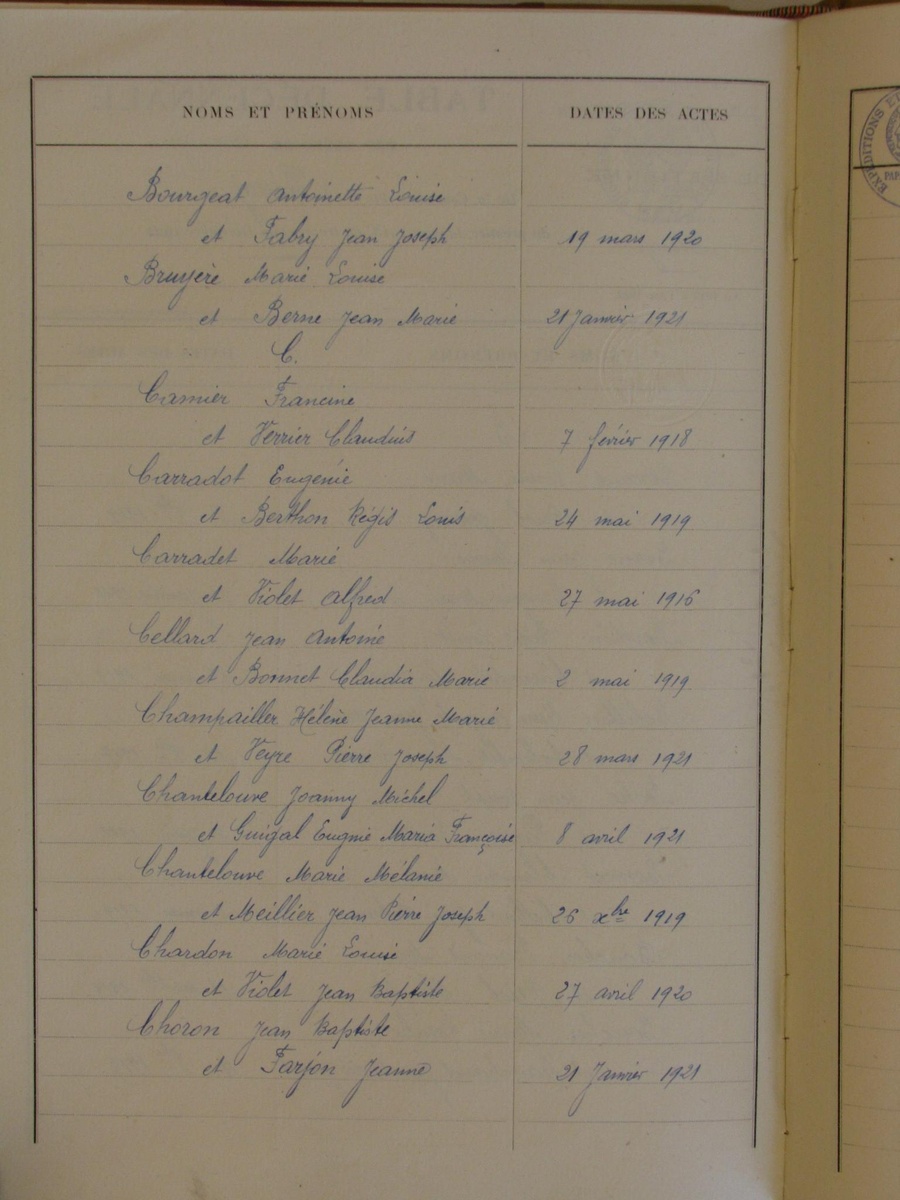 NOMS ET PRÉNOMS DATES DES ACTES
Bourgeat Antoinette Louise
et Fabry Jean Joseph 19 mars 1920
Bruyère Marie Louise
et Berne Jean Marie 21 Janvier 1921
C.
Camier Francine
et Verrier Claudius 7 février 1918
Carradot Eugénie
et Berthon Régis Louis 24 mai 1919
Carradet Marie
et Violet Alfred 27 mai 1916
Cellard Jean Antoine
et Bonnet Claudia Marie 2 mai 1919
Champailler Hélène Jeanne Marie
et Veyre Pierre Joseph 28 mars 1921
Chantelouve Joanny Michel
et Guigal Eugnie Maria Françoise 8 avril 1921
Chantelouve Marie Mélanie
et Meillier Jean Pierre Joseph 26 xbre 1919
Chardon Marie Louise
et Violet Jean Baptiste 27 avril 1920
Choron Jean Baptiste
et Farjon Jeanne 21 Janvier 1921
EXPÉDITIONS ET